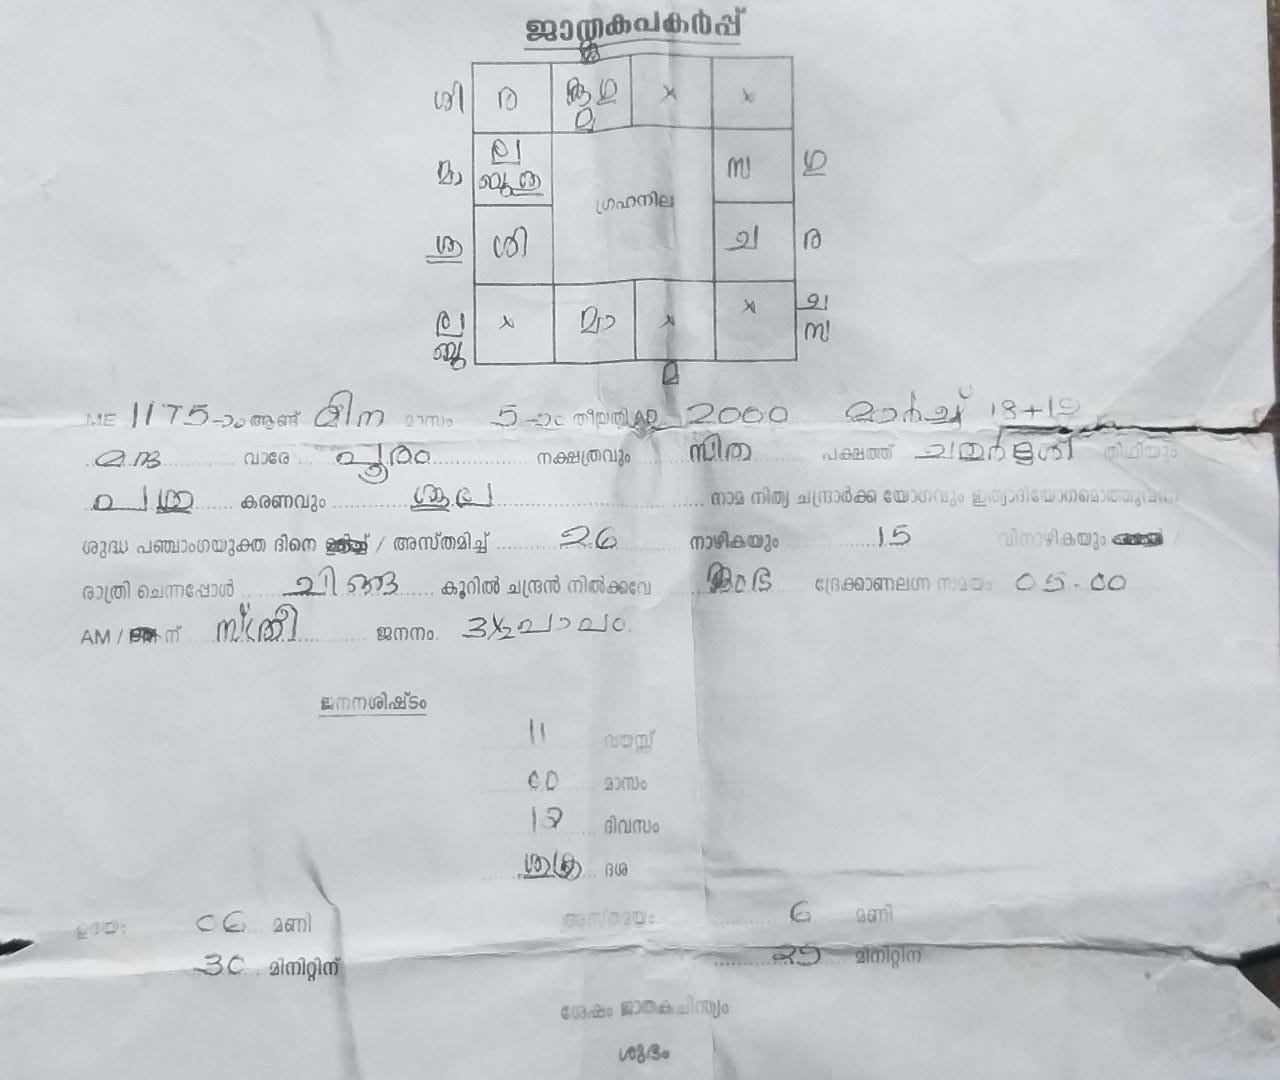 ജാതകപകർപ്പ്
ശി ര ഗു x x
മാ ല ബു ശു സ ഗു
ഗ്രഹനില
ശു ശി ച ര
ല ബു x മാ x x ച സ
മ
ME 1175-ാം ആണ്ട് മീന മാസം 5-ാം തീയതി AD 2000 മാർച്ച് 18+19
മന്ദ വാരേ പൂരം നക്ഷത്രവും സിത പക്ഷത്ത് ചതുർദ്ദശി തിഥിയും
കരണവും ശൂല നാമ നിത്യ ചന്ദ്രാർക്ക യോഗവും ഇത്യാദിയോഗമൊത്തുവന്ന
ശുദ്ധ പഞ്ചാംഗയുക്ത ദിനെ / അസ്തമിച്ച് 26 നാഴികയും 15 വിനാഴികയും /
രാത്രി ചെന്നപ്പോൾ ചിങ്ങ കൂറിൽ ചന്ദ്രൻ നിൽക്കവേ കുംഭ ദ്രേക്കാണലഗ്ന സമയം 05.00
AM / ന് സ്ത്രീ ജനനം.
ജനനശിഷ്ടം
11 വയസ്സ്
00 മാസം
ദിവസം
ശുക്ര ദശ
ഉദയം 06 മണി അസ്തമയം 6 മണി
30 മിനിറ്റിന് 29 മിനിറ്റിന
ശേഷം ജാതക ചിന്ത്യം
ശുഭം